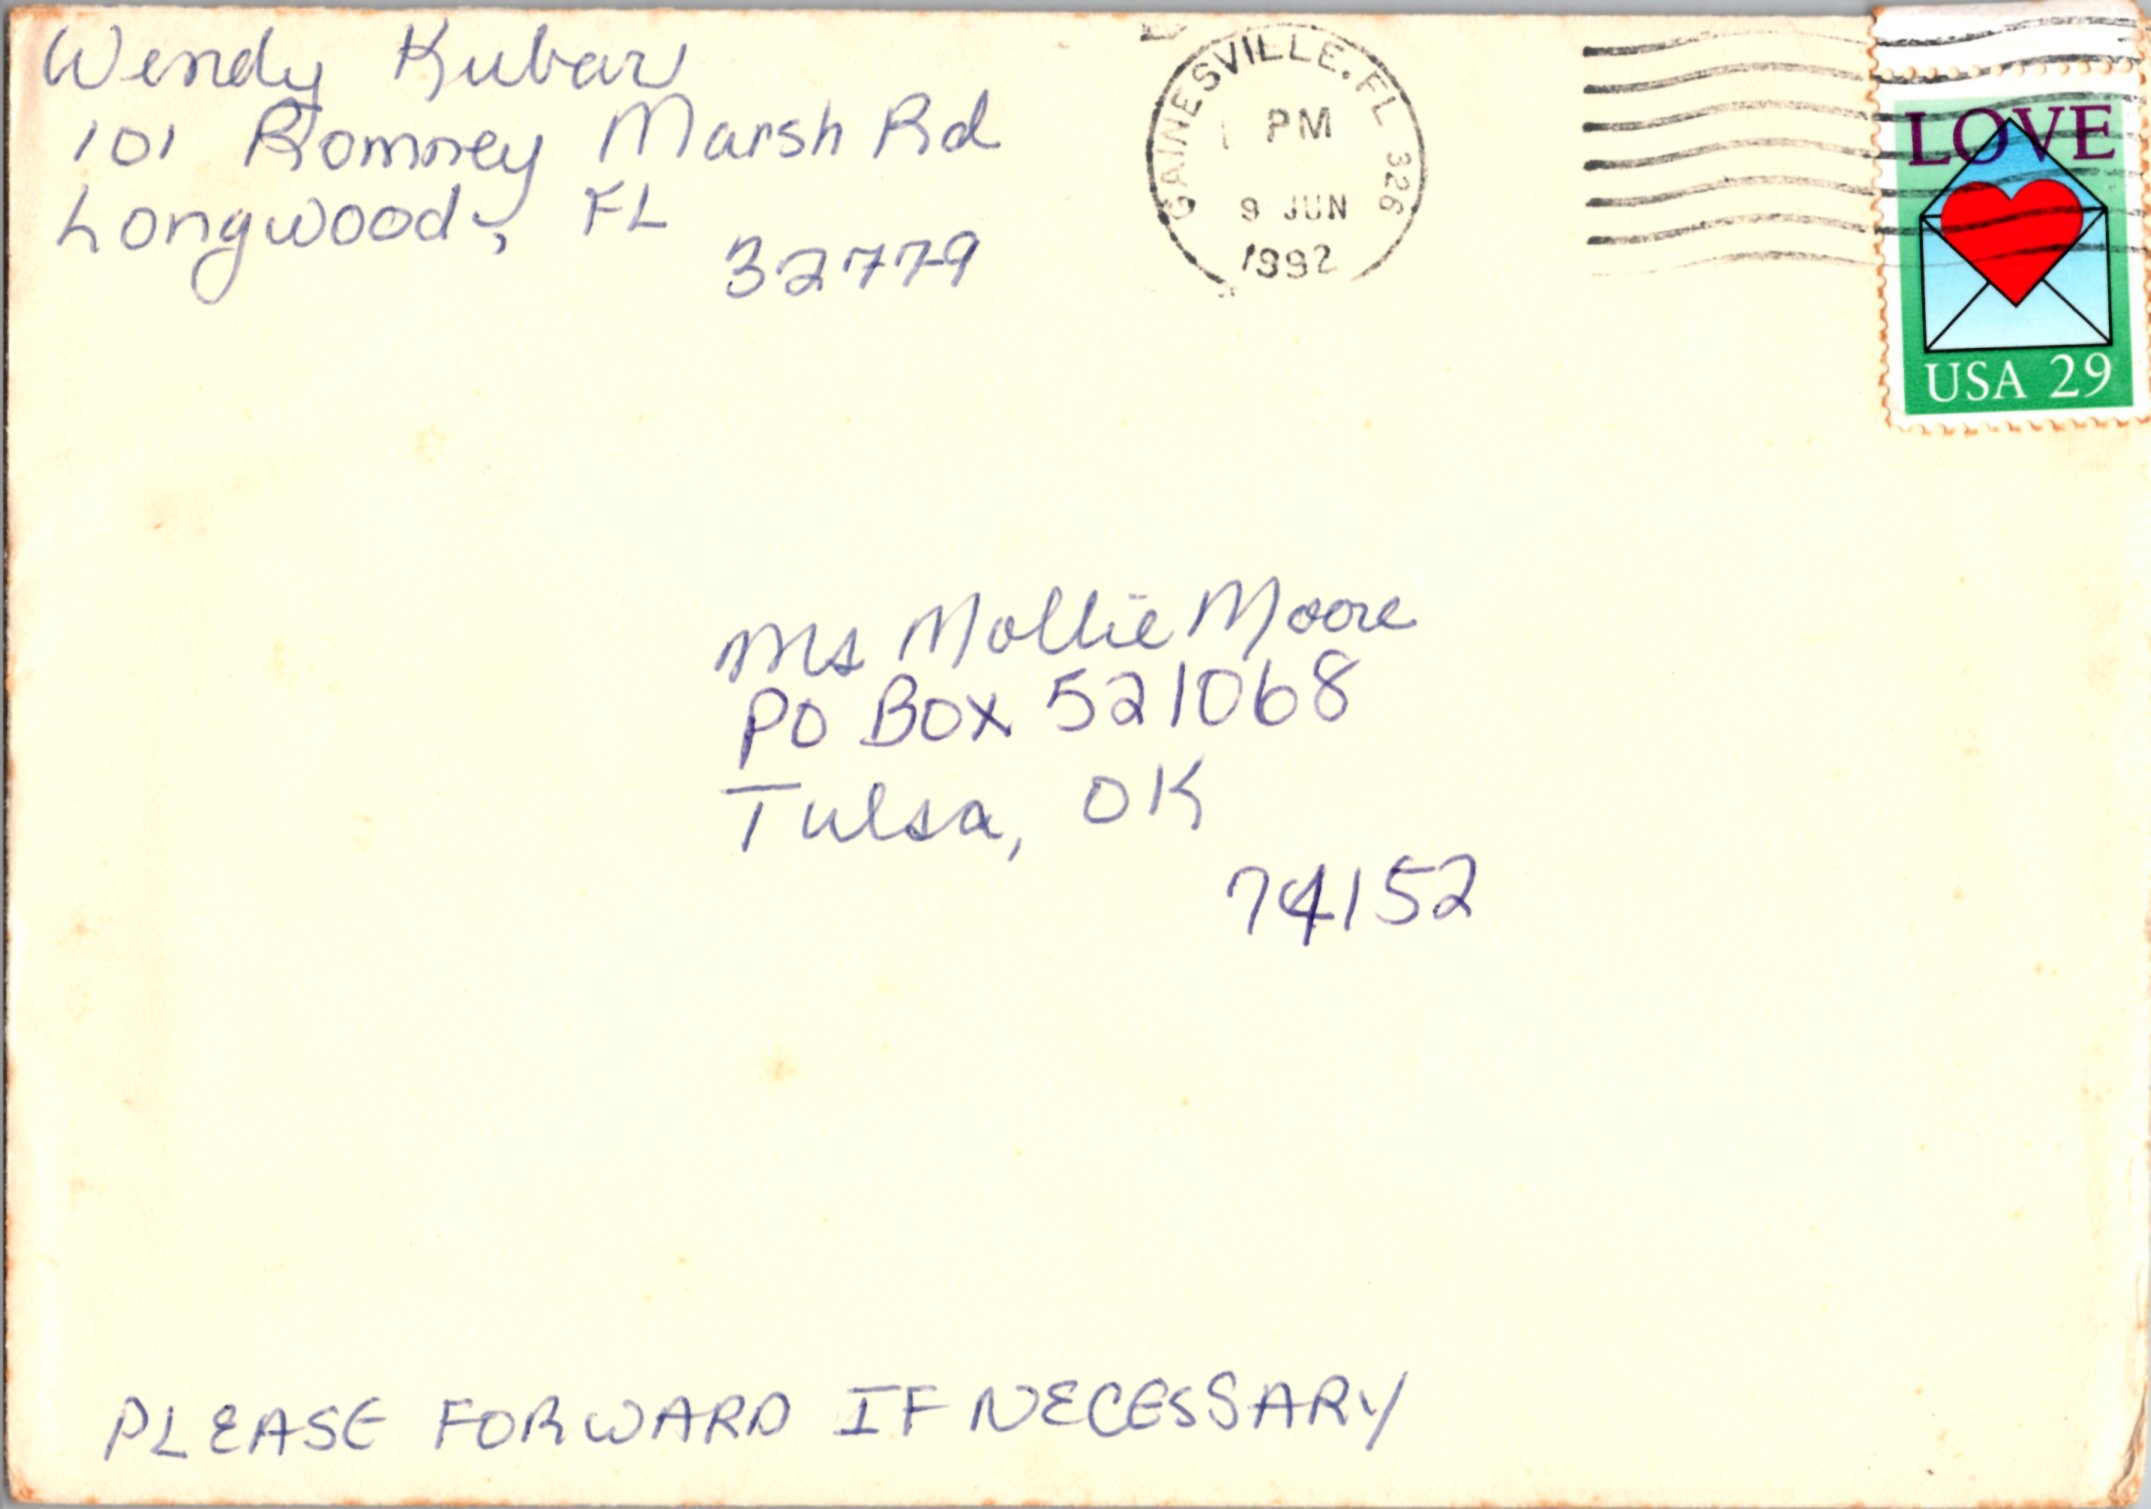 Wendy Kubar
101 Romney Marsh Rd
Longwood, FL
32779
GAINESVILLE, FL 326
PM
9 JUN
1992
LOVE
USA 29
Ms Mollie Moore
PO Box 521068
Tulsa, OK
74152
PLEASE FORWARD IF NECESSARY